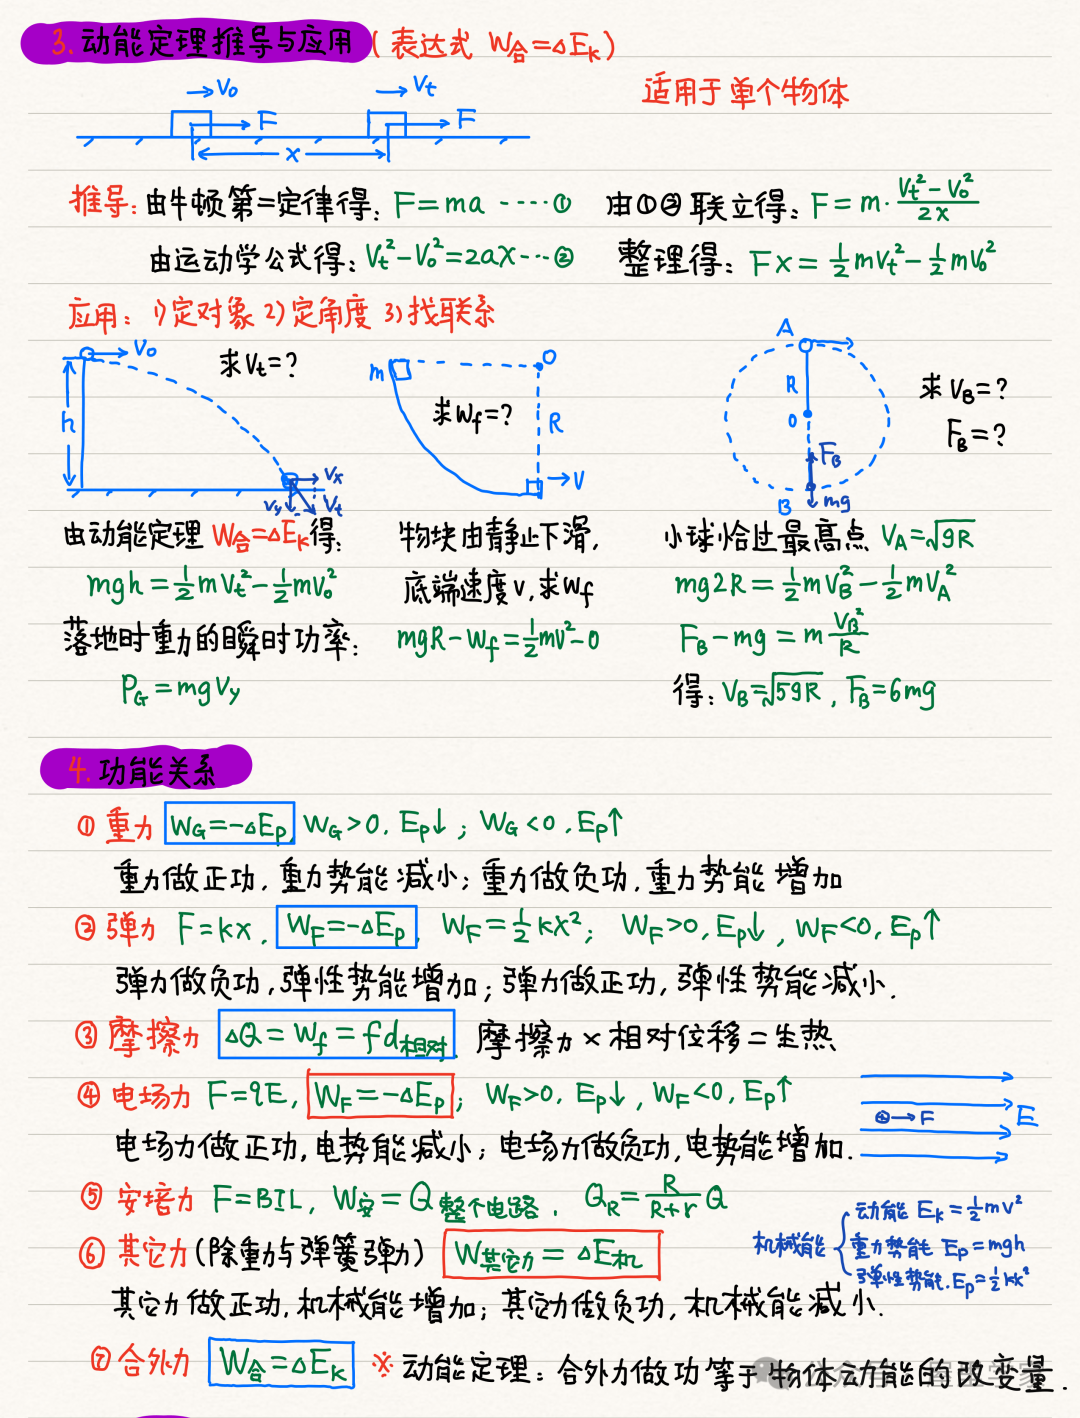 3. 动能定理推导与应用 (表达式 W合=△Ek)
适用于单个物体
V₀ Vt
F F
x
推导: 由牛顿第二定律得: F=ma ····① 由①②联立得: F=m·(Vt²-V₀²)/2x
由运动学公式得: Vt²-V₀²=2ax···② 整理得: Fx=½mVt²-½mV₀²
应用: 1)定对象 2)定角度 3)找联系
V₀ 求Vt=?
h
Vx
Vy Vt
m O
求Wf=? R
V
A
R
O
FB
B mg
求VB=?
FB=?
由动能定理 W合=△Ek得:
mgh=½mVt²-½mV₀²
落地时重力的瞬时功率:
PG=mgVy
物块由静止下滑,
底端速度v,求Wf
mgR-Wf=½mv²-0
小球恰过最高点 VA=√gR
mg2R=½mVB²-½mVA²
FB-mg=m VB²/R
得: VB=√5gR, FB=6mg
4. 功能关系
① 重力 WG=-△Ep, WG>0, Ep↓; WG<0, Ep↑
重力做正功,重力势能减小; 重力做负功,重力势能增加
② 弹力 F=kx, WF=-△Ep, WF=½kx²; WF>0, Ep↓, WF<0, Ep↑
弹力做负功,弹性势能增加; 弹力做正功,弹性势能减小.
③ 摩擦力 △Q=Wf=fd相对, 摩擦力×相对位移=生热
④ 电场力 F=qE, WF=-△Ep; WF>0, Ep↓, WF<0, Ep↑
⊕→F E
电场力做正功,电势能减小; 电场力做负功,电势能增加.
⑤ 安培力 F=BIL, W安=Q整个电路. QR=R/(R+r) Q
⑥ 其它力(除重力与弹簧弹力) W其它力=△E机
机械能 { 动能 Ek=½mv²
重力势能 Ep=mgh
弹性势能. Ep=½kx²
其它力做正功,机械能增加; 其它力做负功,机械能减小.
⑦ 合外力 W合=△Ek ※动能定理: 合外力做功等于物体动能的改变量.
公众号